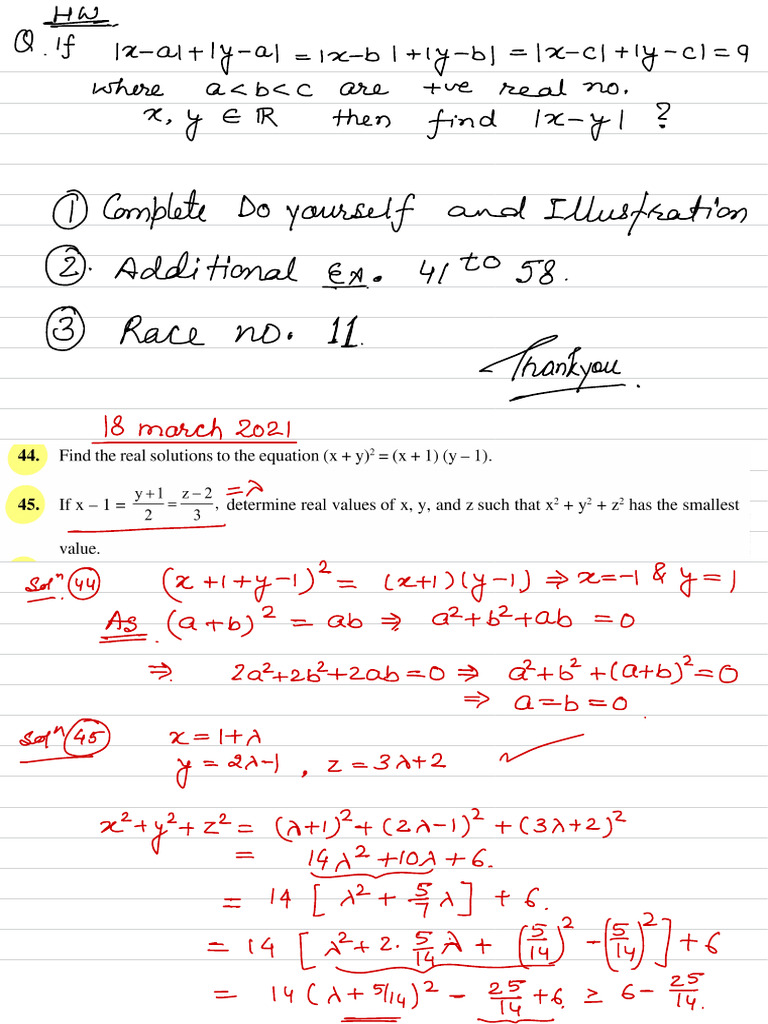 HW
Q. If |x-a|+|y-a| = |x-b|+|y-b| = |x-c|+|y-c| = 9
where a<b<c are +ve real no.
x, y ∈ ℝ then find |x-y| ?
① Complete Do yourself and Illustration
②. Additional Ex. 41 to 58.
③ Race no. 11.
Thankyou.
18 march 2021
44. Find the real solutions to the equation (x + y)² = (x + 1) (y – 1).
45. If x – 1 = (y+1)/2 = (z–2)/3, =λ determine real values of x, y, and z such that x² + y² + z² has the smallest
value.
Solⁿ 44 (x+1+y-1)² = (x+1)(y-1) ⇒ x=-1 & y=1
As (a+b)² = ab ⇒ a²+b²+ab = 0
⇒ 2a²+2b²+2ab=0 ⇒ a²+b²+(a+b)²=0
⇒ a=b=0
Solⁿ 45 x=1+λ
y = 2λ-1, z = 3λ+2
x²+y²+z² = (λ+1)²+(2λ-1)²+(3λ+2)²
= 14λ²+10λ+6.
= 14[λ²+5/7 λ]+6.
= 14[λ²+2·5/14 λ+(5/14)²-(5/14)²]+6
= 14(λ+5/14)²-25/14+6 ≥ 6-25/14.